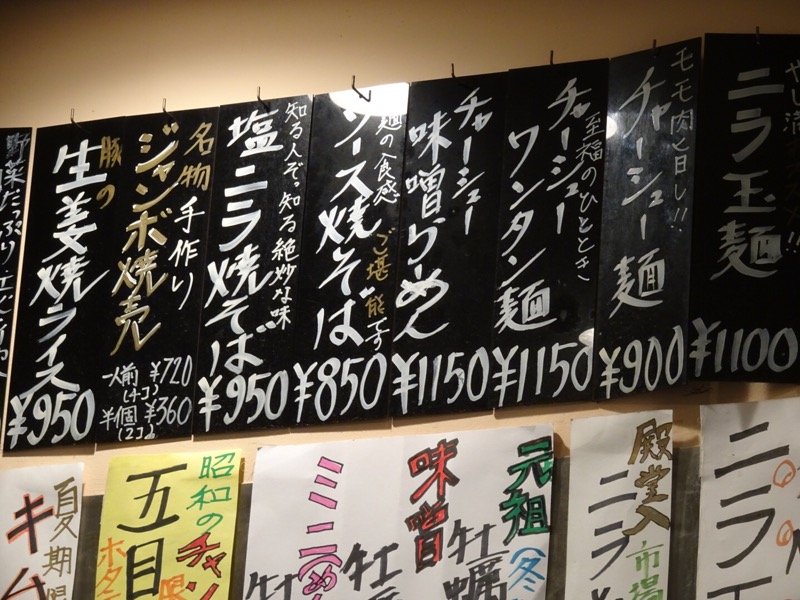 ニラ玉麺
¥1100
モモ肉ヒヨし!!
チャーシュー麺
¥900
チャーシュー
ワンタン麺
至福のひととき
¥1150
チャーシュー
味噌らーめん
¥1150
麺の食感
ご堪能です
ソース焼そば
¥850
知る人ぞ。知る絶妙な味
塩ニラ焼そば
¥950
名物
手作り
ジャンボ焼売
一人前 ¥720
(4コ)
半個 ¥360
(2コ)
豚の
生姜焼ライス
¥950
野菜たっぷり
殿堂入
市場
元祖
(冬
牡蠣
味噌
牡
ミニ(め
牡
昭和の
チャン
五目
ホタテ
夏期限
キム